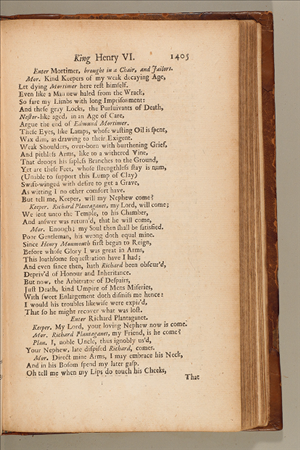 King Henry VI. 1405
Enter Mortimer, brought in a Chair, and Jailors.
Mor. Kind Keepers of my weak decaying Age,
Let dying Mortimer here rest himself.
Even like a Man new haled from the Wrack,
So fare my Limbs with long Imprisonment:
And these gray Locks, the Pursuivants of Death,
Nestor-like aged, in an Age of Care,
Argue the end of Edmund Mortimer.
These Eyes, like Lamps, whose wasting Oil is spent,
Wax dim, as drawing to their Exigent.
Weak Shoulders, over-born with burthening Grief,
And pithless Arms, like to a withered Vine,
That droops his sapless Branches to the Ground,
Yet are these Feet, whose strengthless stay is num,
(Unable to support this Lump of Clay)
Swift-winged with desire to get a Grave,
As witting I no other comfort have.
But tell me, Keeper, will my Nephew come?
Keeper. Richard Plantagenet, my Lord, will come;
We sent unto the Temple, to his Chamber,
And answer was return'd, that he will come.
Mor. Enough; my Soul then shall be satisfied.
Poor Gentleman, his wrong doth equal mine.
Since Henry Monmouth first began to Reign,
Before whose Glory I was great in Arms,
This loathsome sequestration have I had;
And even since then, hath Richard been obscur'd,
Depriv'd of Honour and Inheritance.
But now, the Arbitrator of Despairs,
Just Death, kind Umpire of Mens Miseries,
With sweet Enlargement doth dismiss me hence:
I would his troubles likewise were expir'd,
That so he might recover what was lost.
Enter Richard Plantagenet.
Keeper. My Lord, your loving Nephew now is come.
Mor. Richard Plantagenet, my Friend, is he come?
Plan. I, noble Uncle, thus ignobly us'd,
Your Nephew, late despised Richard, comes.
Mor. Direct mine Arms, I may embrace his Neck,
And in his Bosom spend my later gasp.
Oh tell me when my Lips do touch his Cheeks,
That